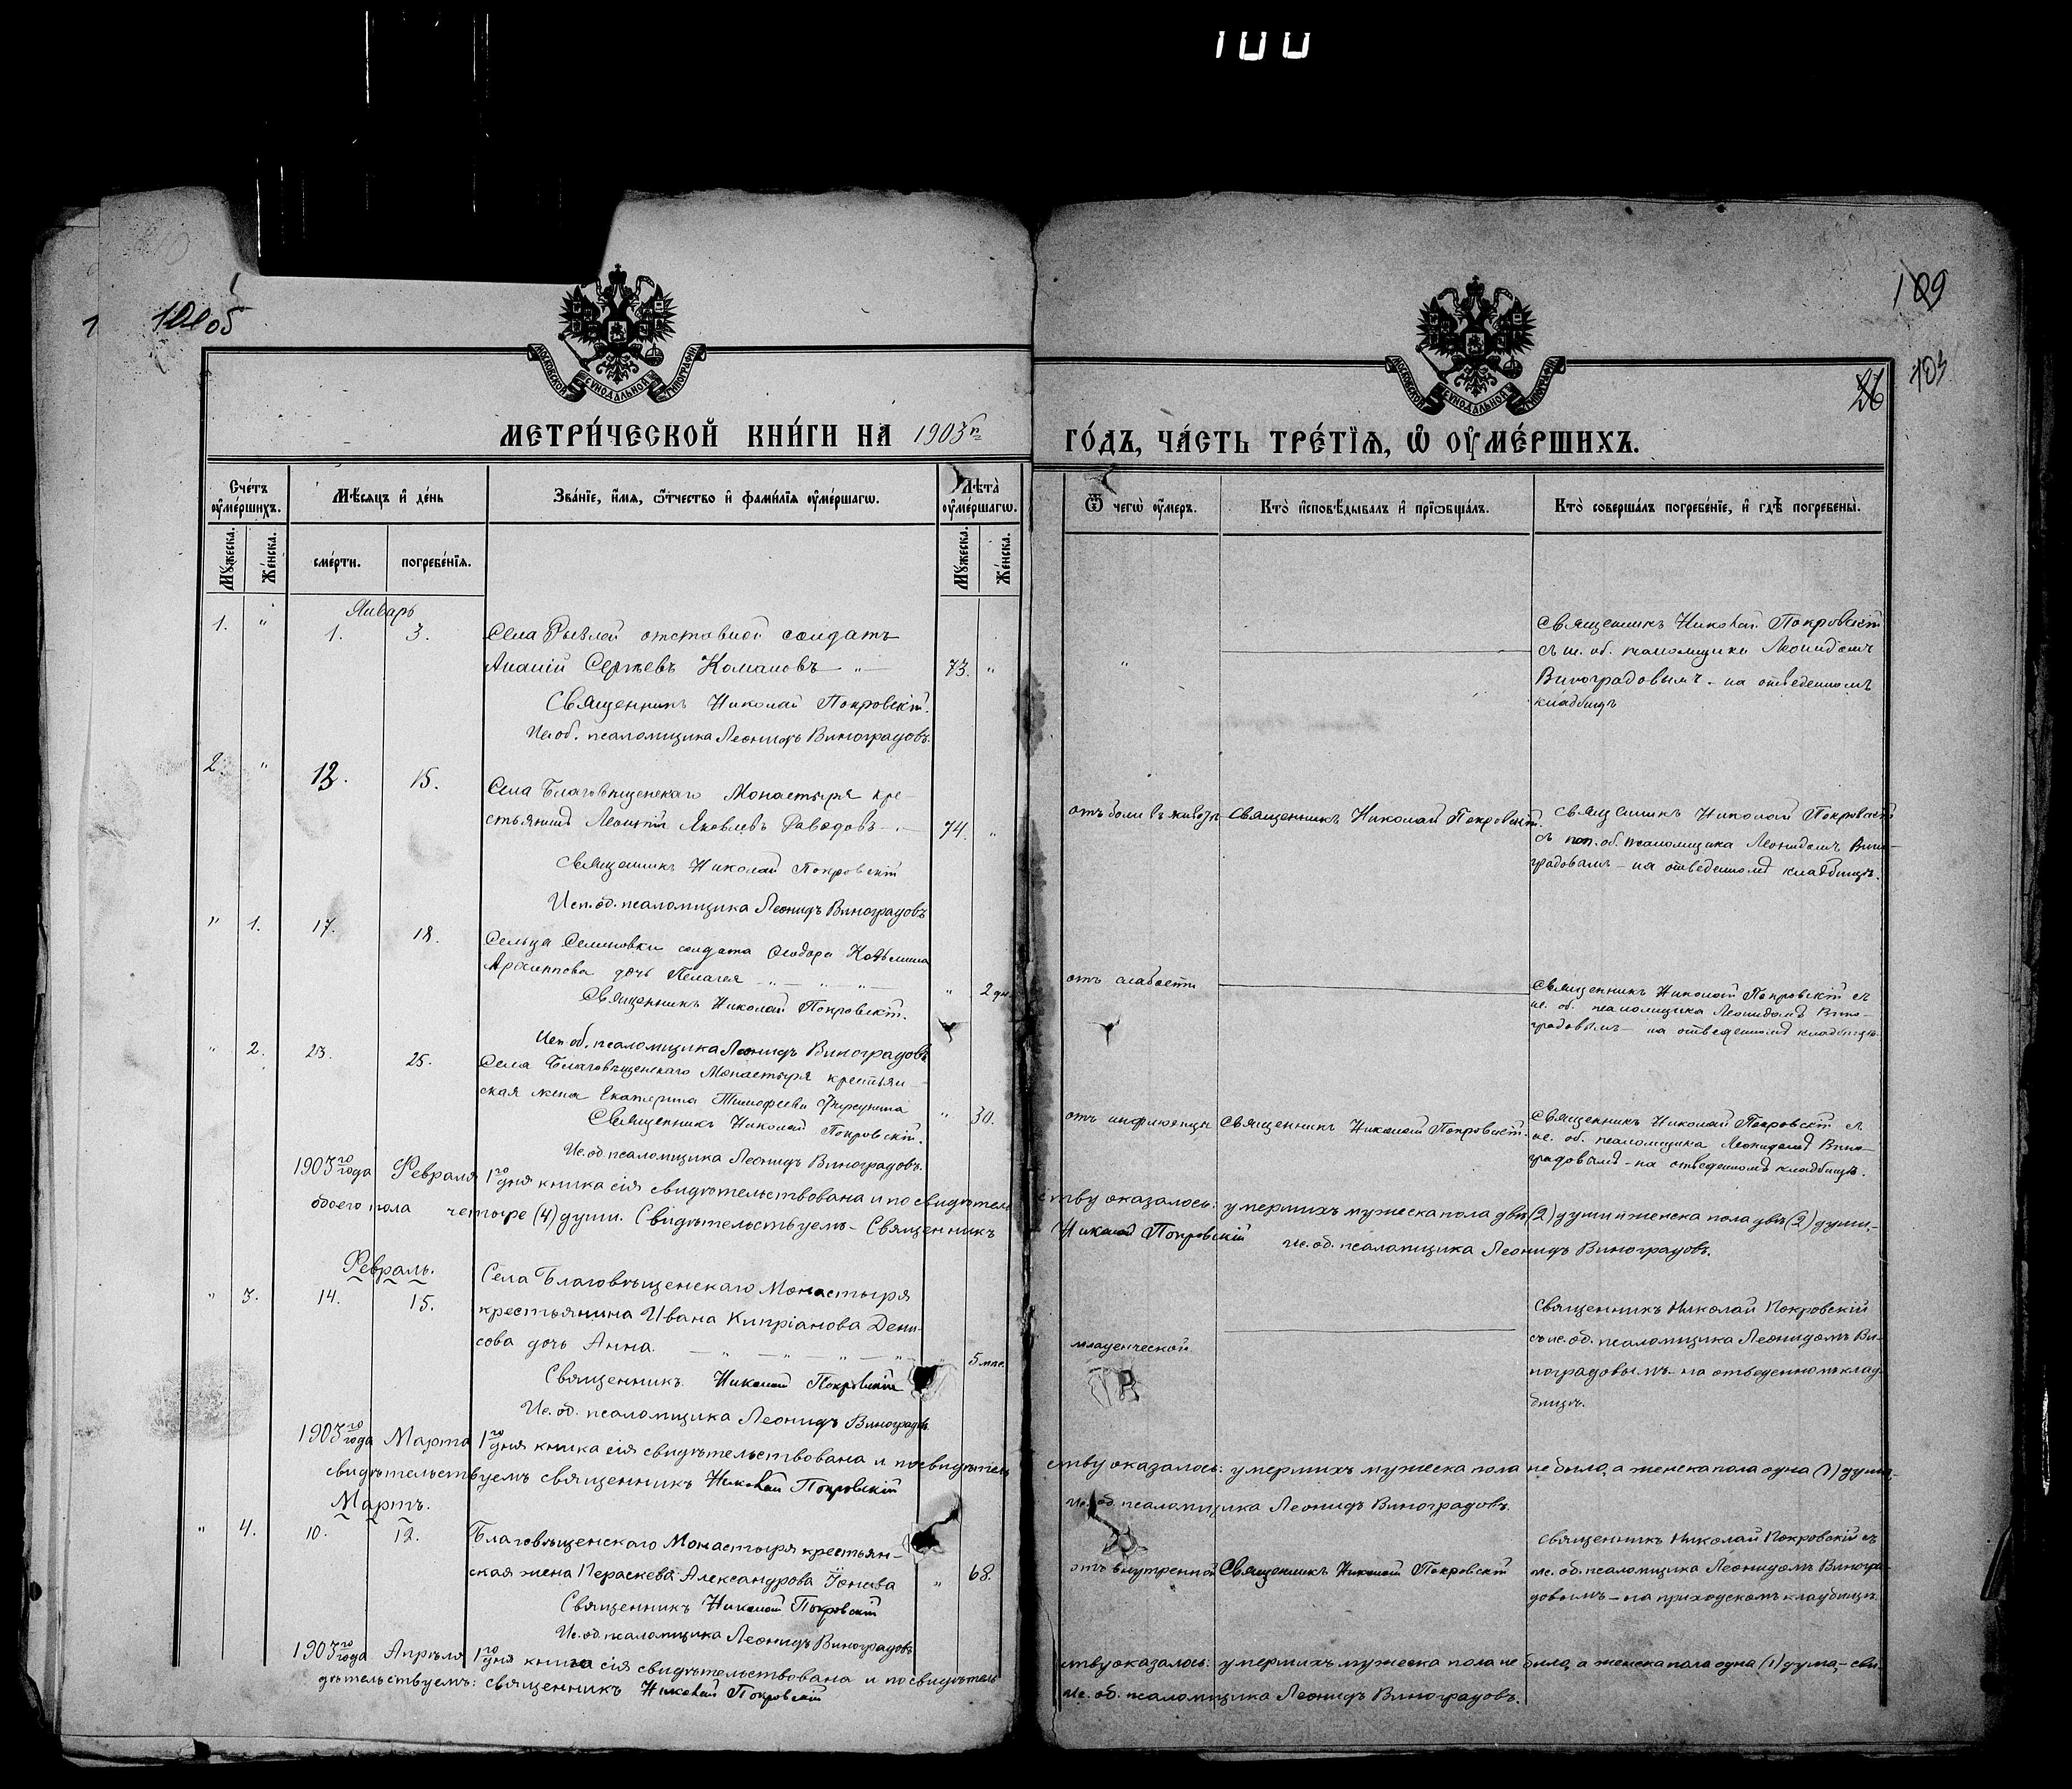 100
101об
109
103
26
МОСКОВСКОЙ СѴНОДАЛЬНОЙ ТИПОГРАФІИ
МОСКОВСКОЙ СѴНОДАЛЬНОЙ ТИПОГРАФІИ
МЕТРИ́ЧЕСКОЙ КНИ́ГИ НА 1903й ГО́ДЪ, ЧА́СТЬ ТРЕ́ТЇѦ, Ѡ ОУМЕ́РШИХЪ.
Сче́тъ оуме́ршихъ.
Мѣ́сяцъ и де́нь
Зва́нїе, и́мя, ѻ́тчество и фами́лїя оуме́ршагѡ.
Лѣта̀ оуме́ршагѡ.
Ѿ чегѡ̀ оу́меръ.
Кто̀ и҆сповѣ́дывалъ и҆ прїѻбща́лъ.
Кто̀ соверша́лъ погребе́нїе, и҆ гдѣ̀ погребены̀.
Мꙋ́жеска. Же́нска.
сме́рти. погребе́нїя.
Мꙋ́жеска. Же́нска.
Январь
1. " 1. 3. Села отставной солдатъ
Ананій Сергѣевъ Комановъ — " — 73. "
Священникъ Николай Покровскій.
Ис. об. псаломщика Леонидъ Виноградовъ.
"
Священникъ Николай Покровскій
съ ис. об. псаломщика Леонидомъ
Виноградовымъ - на отведенномъ
кладбищѣ
2. " 12. 15. Села Благовѣщенскаго Монастыря кре-
стьянинъ Леонтій Яковлевъ — 74. "
Священникъ Николай Покровскій
Исп. об. псаломщика Леонидъ Виноградовъ
отъ боли въ животѣ
Священникъ Николай Покровскій.
Священникъ Николай Покровскій
съ исп. об. псаломщика Леонидомъ Вино-
градовымъ - на отведенномъ кладбищѣ.
" 1. 17. 18. Сельца Селиновки солдата Ѳеодора Козьмина
Архиппова дочь Пелагея — " — " — " 2 дн.
Священникъ Николай Покровскій.
Исп. об. псаломщика Леонидъ Виноградовъ
отъ слабости
Священникъ Николай Покровскій съ
ис. об. псаломщика Леонидомъ Вино-
градовымъ - на отведенномъ кладбищѣ.
" 2. 23. 25. Села Благовѣщенскаго Монастыря крестьян-
ская жена Екатерина Тимофеева " 30.
Священникъ Николай Покровскій.
Ис. об. псаломщика Леонидъ Виноградовъ.
отъ инфлюэнцы
Священникъ Николай Покровскій.
Священникъ Николай Покровскій съ
ис. об. псаломщика Леонидомъ Вино-
градовымъ - на отведенномъ кладбищѣ.
1903го года Февраля 1го дня книга сія свидѣтельствована и по свидѣтель ству оказалось: умершихъ мужеска пола двѣ (2) души и женска пола двѣ (2) души,-
обоего пола четыре (4) души. Свидѣтельствуемъ - Священникъ Николай Покровскій
ис. об. псаломщика Леонидъ Виноградовъ.
Февраль.
" 3. 14. 15. Села Благовѣщенскаго Монастыря
крестьянина Ивана Кипріанова Дени-
сова дочь Анна. — " — " — " — " 5 мѣс.
Священникъ Николай Покровскій
Ис. об. псаломщика Леонидъ Виноградовъ
младенческой
Священникъ Николай Покровскій
съ ис. об. псаломщика Леонидомъ Ви-
ноградовымъ - на отведенномъ клад-
бищѣ.
1903го года Марта 1го дня книга сія свидѣтельствована и по свидѣтель ству оказалось: умершихъ мужеска пола не было, а женска пола одна (1) душа,-
свидѣтельствуемъ священникъ Николай Покровскій
Ис. об. псаломщика Леонидъ Виноградовъ.
Мартъ.
" 4. 10. 12. Благовѣщенскаго Монастыря крестьян-
ская жена Пераскева Александрова Іонова " 68.
Священникъ Николай Покровскій
Ис. об. псаломщика Леонидъ Виноградовъ
отъ внутренной
Священникъ Николай Покровскій
Священникъ Николай Покровскій съ
ис. об. псаломщика Леонидомъ Виногра-
довымъ - на приходскомъ кладбищѣ
1903го года Апрѣля 1го дня книга сія свидѣтельствована и по свидѣтель ству оказалось: умершихъ мужеска пола не было, а женска пола одна (1) душа,- сви-
дѣтельствуемъ: священникъ Николай Покровскій
Ис. об. псаломщика Леонидъ Виноградовъ.